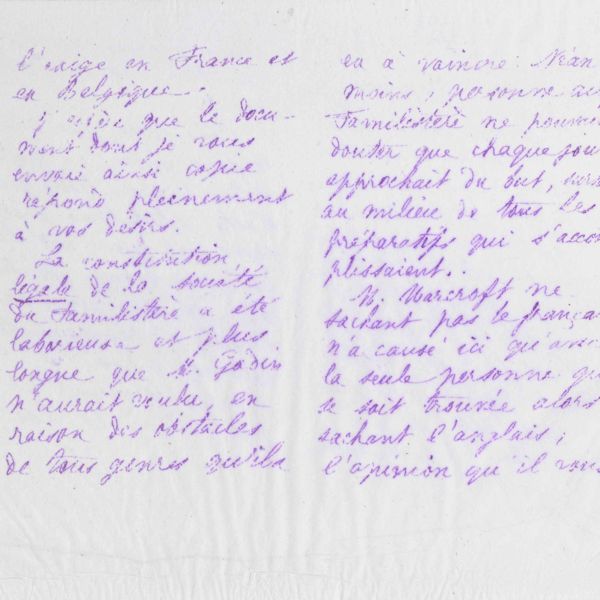 l'exige en France et
en Belgique.
J'espère que le docu-
ment dont je vous
envoie ainsi copie
répond pleinement
à vos désirs.
La constitution
légale de la société
du Familistère a été
laborieuse et plus
longue que M. Godin
n'aurait voulu, en
raison des obstacles
de tous genres qu'il a
eu à vaincre. Néan
moins, personne au
Familistère ne pouvait
douter que chaque jour
approchait du but,
au milieu de tous les
préparatifs qui s'accom
plissaient.
M. Warcroft ne
sachant pas le français
n'a causé ici qu'avec
la seule personne qui
se soit trouvée alors
sachant l'anglais;
l'opinion qu'il vous